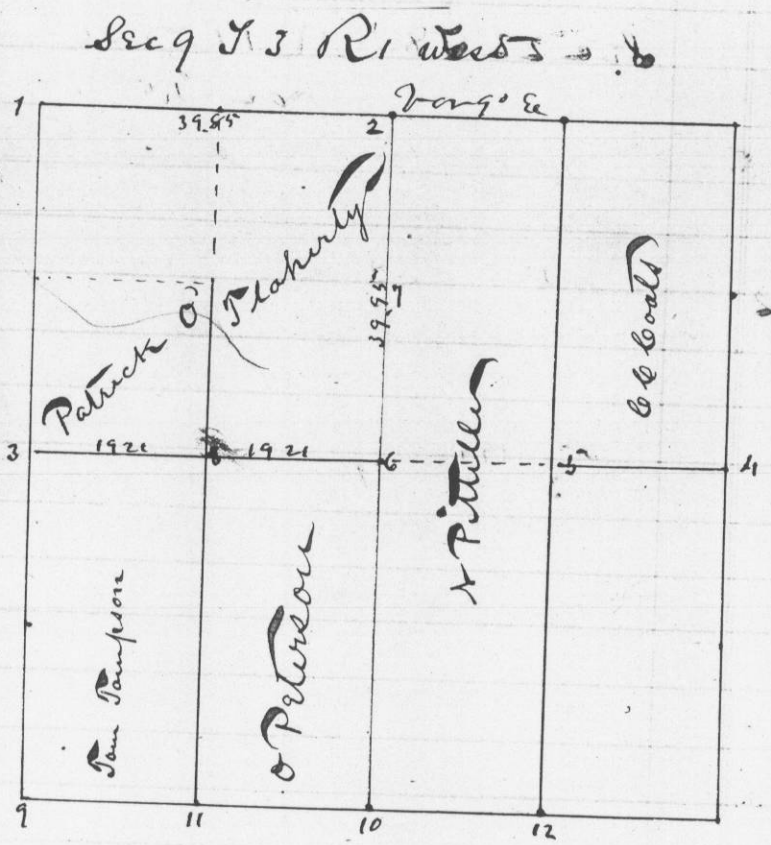 Sec 9 T 3 R 1 West
1
39.85
2
Var 9° E
Patrick O' Flaherty
39.95
C C Coats
3
1921
8
1921
6
5
4
P Miller
Tam Tampson
O Peterson
9
11
10
12